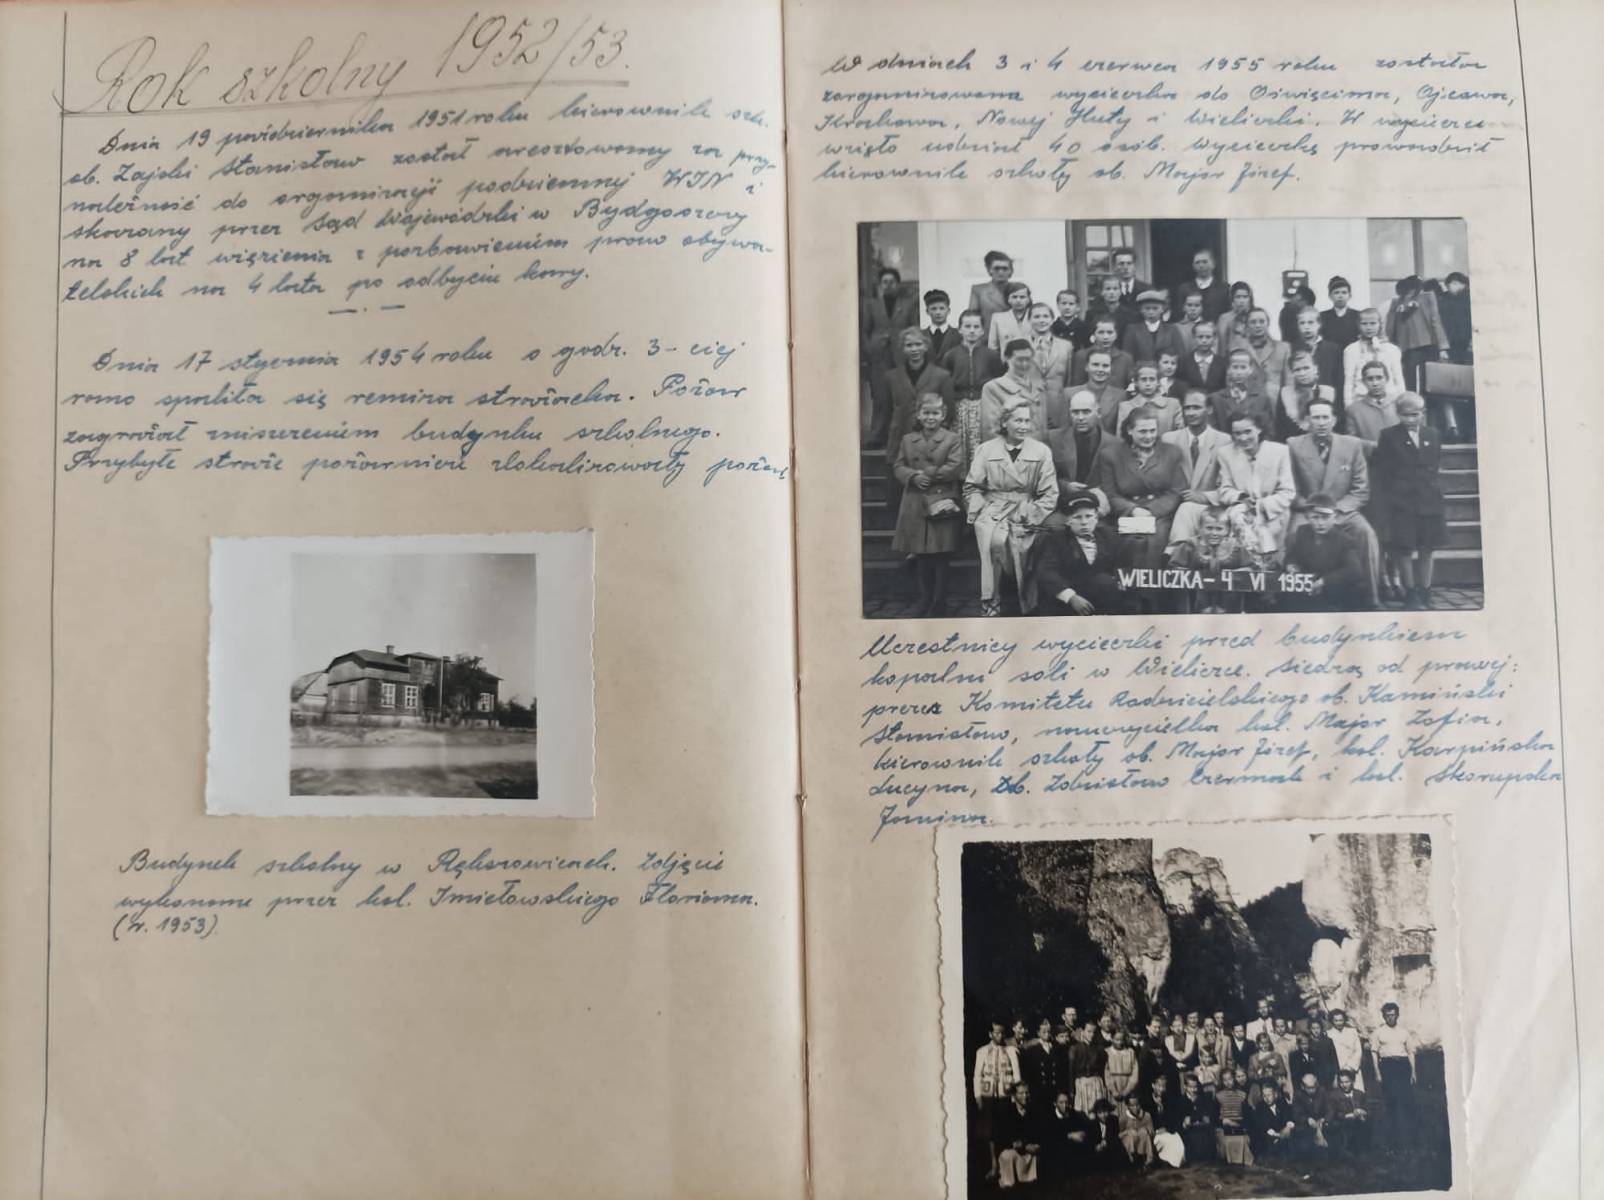 Rok szkolny 1952/53.
Dnia 19 października 1951 roku kierownik szk.
ob. Zajski Stanisław został aresztowany za przy-
należność do organizacji podziemnej WIN i
skazany przez Sąd Wojewódzki w Bydgoszczy
na 8 lat więzienia z pozbawieniem praw obywa-
telskich na 4 lata po odbyciu kary.
Dnia 17 stycznia 1954 roku o godz. 3-ciej
rano spaliła się remiza strażacka. Pożar
zagrażał zniszczeniem budynku szkolnego.
Przybyłe straże pożarnicze zlokalizowały pożar
Budynek szkolny w Rękorowicach. Zdjęcie
wykonane przez kol. Imiełowskiego Floriana.
(r. 1953)
W dniach 3 i 4 czerwca 1955 roku została
zorganizowana wycieczka do Oświęcima, Ojcowa,
Krakowa, Nowej Huty i Wieliczki. W wycieczce
wzięło udział 40 osób. Wycieczkę prowadził
kierownik szkoły ob. Major Józef.
WIELICZKA - 4 VI 1955
Uczestnicy wycieczki przed budynkiem
kopalni soli w Wieliczce. Siedzą od prawej:
prezes Komitetu Rodzicielskiego ob. Kamiński
Stanisław, nauczycielka kol. Major Zofia,
kierownik szkoły ob. Major Józef, kol. Karpińska
Lucyna, ob. Zdzisław Czermak i kol. Skorupska
Janina.